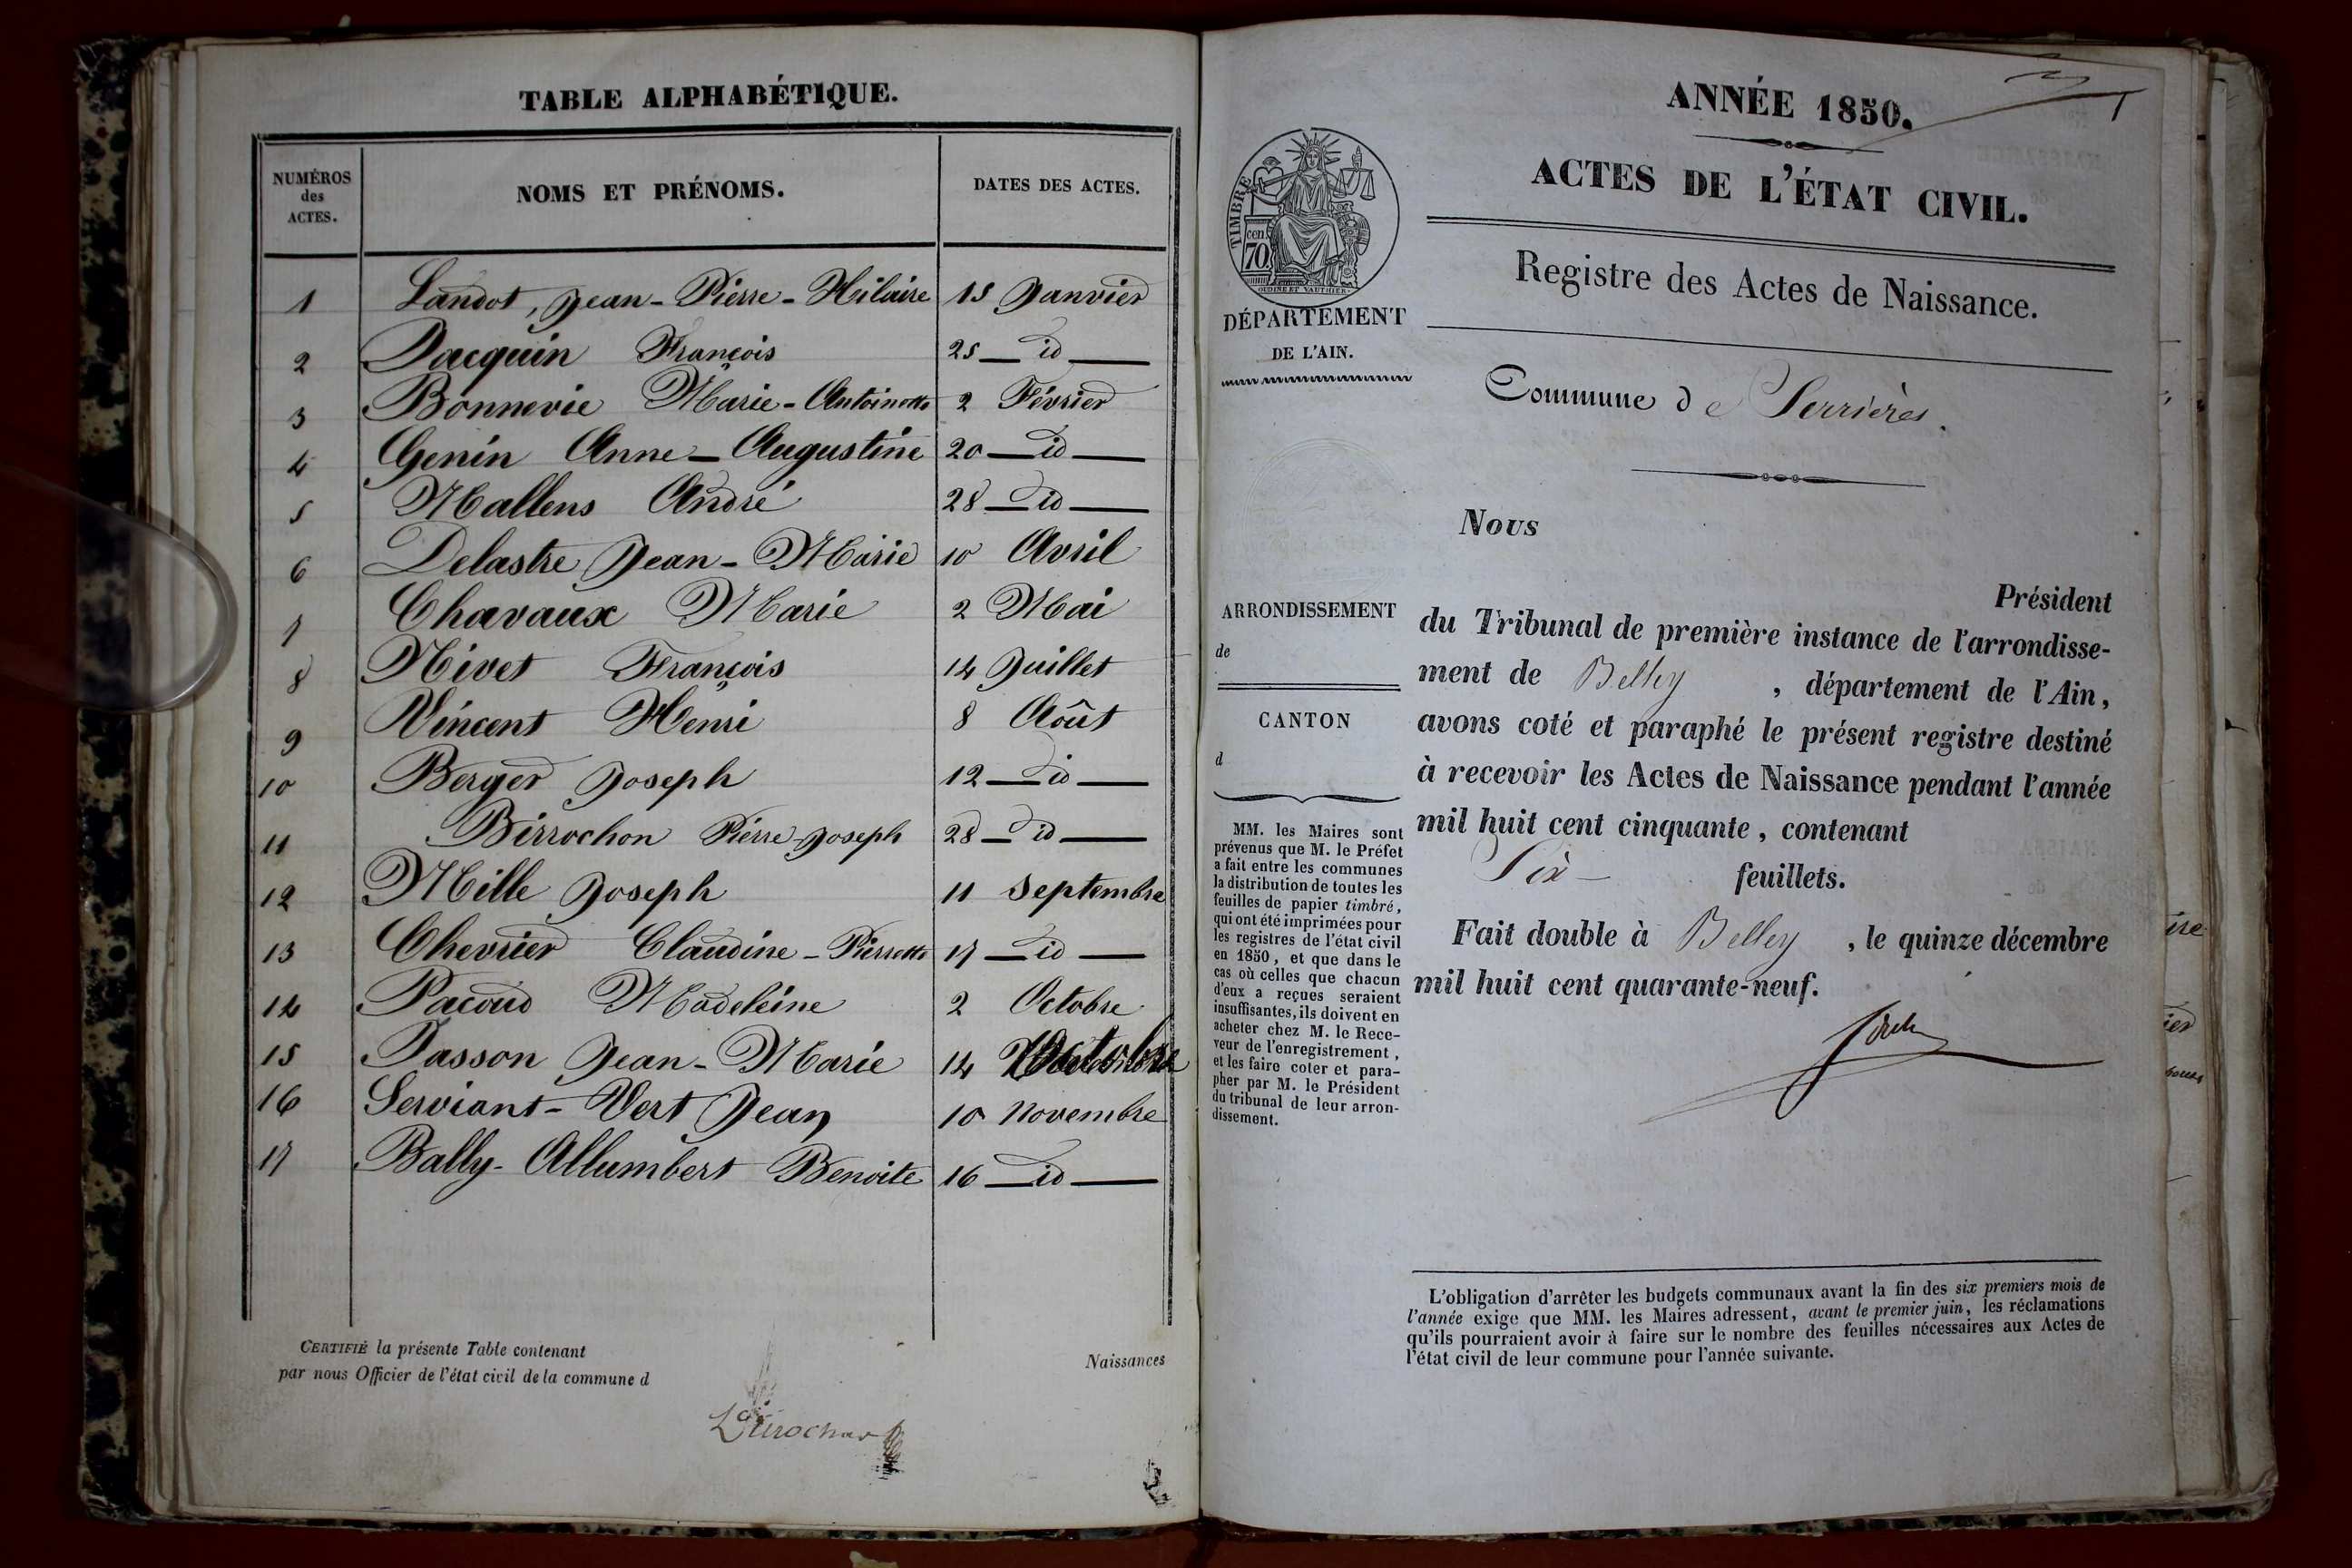 TABLE ALPHABÉTIQUE.
NUMÉROS des ACTES. NOMS ET PRÉNOMS. DATES DES ACTES.
1 Landot, Jean-Pierre-Hilaire 15 Janvier
2 Jacquin François 25 — id —
3 Bonnevie Marie-Antoinette 2 Février
4 Genin Anne-Augustine 20 — id —
5 Mallens André 28 — id —
6 Delastre Jean-Marie 10 Avril
7 Chavaux Marie 2 Mai
8 Nivet François 14 Juillet
9 Vincent Henri 8 Août
10 Berger Joseph 12 — id —
11 Birrochon Pierre-Joseph 28 — id —
12 Mille Joseph 11 Septembre
13 Chevrier Claudine-Pierrette 17 — id —
14 Pacoud Madeleine 2 Octobre
15 Jasson Jean-Marie 14 Octobre
16 Serviant-Vert Jean 10 Novembre
17 Bally-Allumbert Benoite 16 — id —
CERTIFIÉ la présente Table contenant Naissances
par nous Officier de l'état civil de la commune d
1
ANNÉE 1850.
ACTES DE L'ÉTAT CIVIL.
TIMBRE
cen. 70
OUDINE ET VAUTHIER
Registre des Actes de Naissance.
DÉPARTEMENT
DE L'AIN.
Commune de Serrières.
Nous
Président
du Tribunal de première instance de l'arrondisse-
ment de Belley, département de l'Ain,
avons coté et paraphé le présent registre destiné
à recevoir les Actes de Naissance pendant l'année
mil huit cent cinquante, contenant
Six — feuillets.
Fait double à Belley, le quinze décembre
mil huit cent quarante-neuf.
ARRONDISSEMENT
de
CANTON
d
MM. les Maires sont
prévenus que M. le Préfet
a fait entre les communes
la distribution de toutes les
feuilles de papier timbré,
qui ont été imprimées pour
les registres de l'état civil
en 1850, et que dans le
cas où celles que chacun
d'eux a reçues seraient
insuffisantes, ils doivent en
acheter chez M. le Rece-
veur de l'enregistrement,
et les faire coter et para-
pher par M. le Président
du tribunal de leur arron-
dissement.
L'obligation d'arrêter les budgets communaux avant la fin des six premiers mois de
l'année exige que MM. les Maires adressent, avant le premier juin, les réclamations
qu'ils pourraient avoir à faire sur le nombre des feuilles nécessaires aux Actes de
l'état civil de leur commune pour l'année suivante.